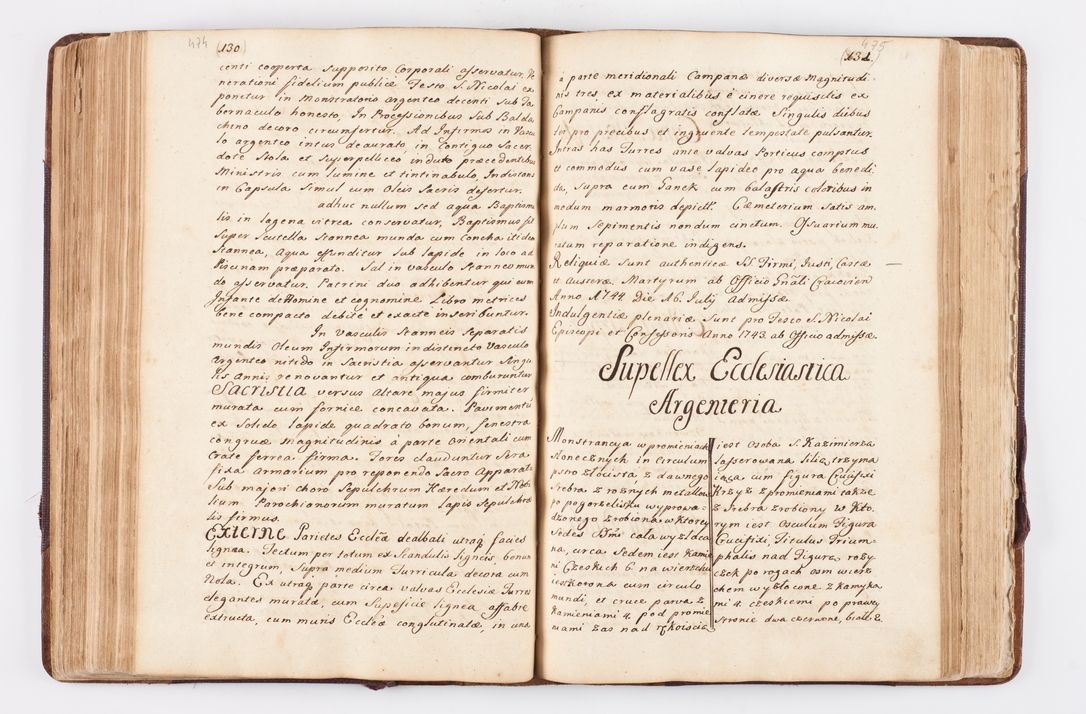 474 (130)
centi cooperta supposito Corporali asservatur, Ve
nerationi fidelium publicæ Festo S. Nicolai ex
ponitur in Monstratorio argenteo decenti sub Ta
bernaculo honesto, In Processionibus sub Balda
chino decoro circumfertur. Ad Infirmos in Vascu
lo argenteo intus deaurato, in Contiguo Sacer
dote Stola et Superpelliceo induto præcedentibus
Ministris cum lumine et tintinabulo, In distans
in Capsula simul cum Oleis Sacris defertur.
adhuc nullum sed aqua Baptisma
lis in lagena vitrea conservatur, Baptismus fit
super Scutella stannea munda cum Concha itidem
stannea, aqua effunditur sub lapide in loco ad
Piscinam præparato. Sal in vasculo stanneo mun
do asservatur. Patrini duo adhibentur qui cum
Infante de Nomine et cognomine Libro metrices
bene compacto debite et exacte inscribuntur.
In vasculis stanneis separatis
mundis Oleum Infirmorum in distincto Vasculo
argenteo nitido in Sacristia asservantur Singu
lis annis renovantur et antiqua comburuntur
Sacristia versus Altare majus firmiter
murata cum fornice concavata. Pavimentũ
ex solido lapide quadrato bonum, fenestra
congruæ magnitudinis à parte Orientali cum
Crate ferrea firma. Fores clauduntur Sera
fixa Armarium pro reponendo Sacro Apparat
Sub majori choro Sepulchrum Hæredum et Nobi
lium Parochianorum muratum lapis Sepulchra
lis firmus.
Externe Parietes Ecclẽa dealbati utraq facies
lignea. Tectum per totum ex Scandulis ligneis, bonum
et integrum, supra medium Turricula decora cum
Nola. Ex utraq parte circa valvas Ecclesiæ Turres
elegantes muratæ, cum Supeficie lignea affabre
extructa, cum muris Ecclẽæ conglutinatæ, in una
475 (131.)
à parte meridionali Campanæ diversæ magnitudi-
nis tres, ex materialibus è cinere requisitis ex
Campanis conflagratis conflatæ Singulis diebus
ter pro precibus et ingruente tempestate pulsantur.
Intras has Turres ante valvas Porticus comptus
et commodus cum vase lapideo pro aqua benedi
da, supra cum Ganek cum balastris coloribus in
modum marmoris depict?. Cæmeterium satis am
plum Sepimentis nondum cinctum. Ossuarium mu
ratum reparatione indigens.
Reliquiæ sunt authenticæ SS. Firmi, Justi, Castæ
et Austeræ. Martyrum ab Officio Gñali Cracovien
Anno 1744 Die 16. Julij Admissæ
Indulgentiæ plenariæ sunt pro Festo S. Nicolai
Episcopi et Confessoris Anno 1743. ab Officio admissæ.
Supellex Ecclesiastica
Argenteria
Monstrancya w promieniach
słonecznych in Circulum
pstro złocista, z dawnego
srebra z roznych metallow
po pogorzelisku wyprowa-
dzonego zrobiona w ktorey
Sedes Dñi cała wyzłoca
na, circa Sedem iest kamie
ni Czeskich 6. na wierzchu
iest korona cum circulo
mundi, et cruce parva z
kamieniami 4. pod promie
niami zas nad rękoiscią
iest Osoba S. Kazimierza
sasserowana Lilią trzyma
iąca cum figura Crucifixi
Krzyż z promieniami także
z srebra zrobiony w kto,
rym iest Osculum Figura
Crucifixi, Titulus Trium-
phalis nad Figurą rozy-
czek po rogach osm wierz
chem wyzłocone z kamyka
mi 4. czeskiemi po prawey
stronie dwa czerwone, białe 2.